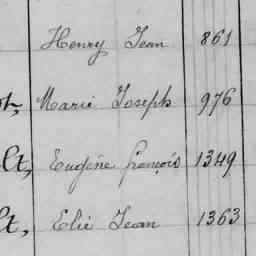 Henry Jean 861
Marie Joseph 976
lt, Eugène françois 1349
lt, Elie Jean 1363